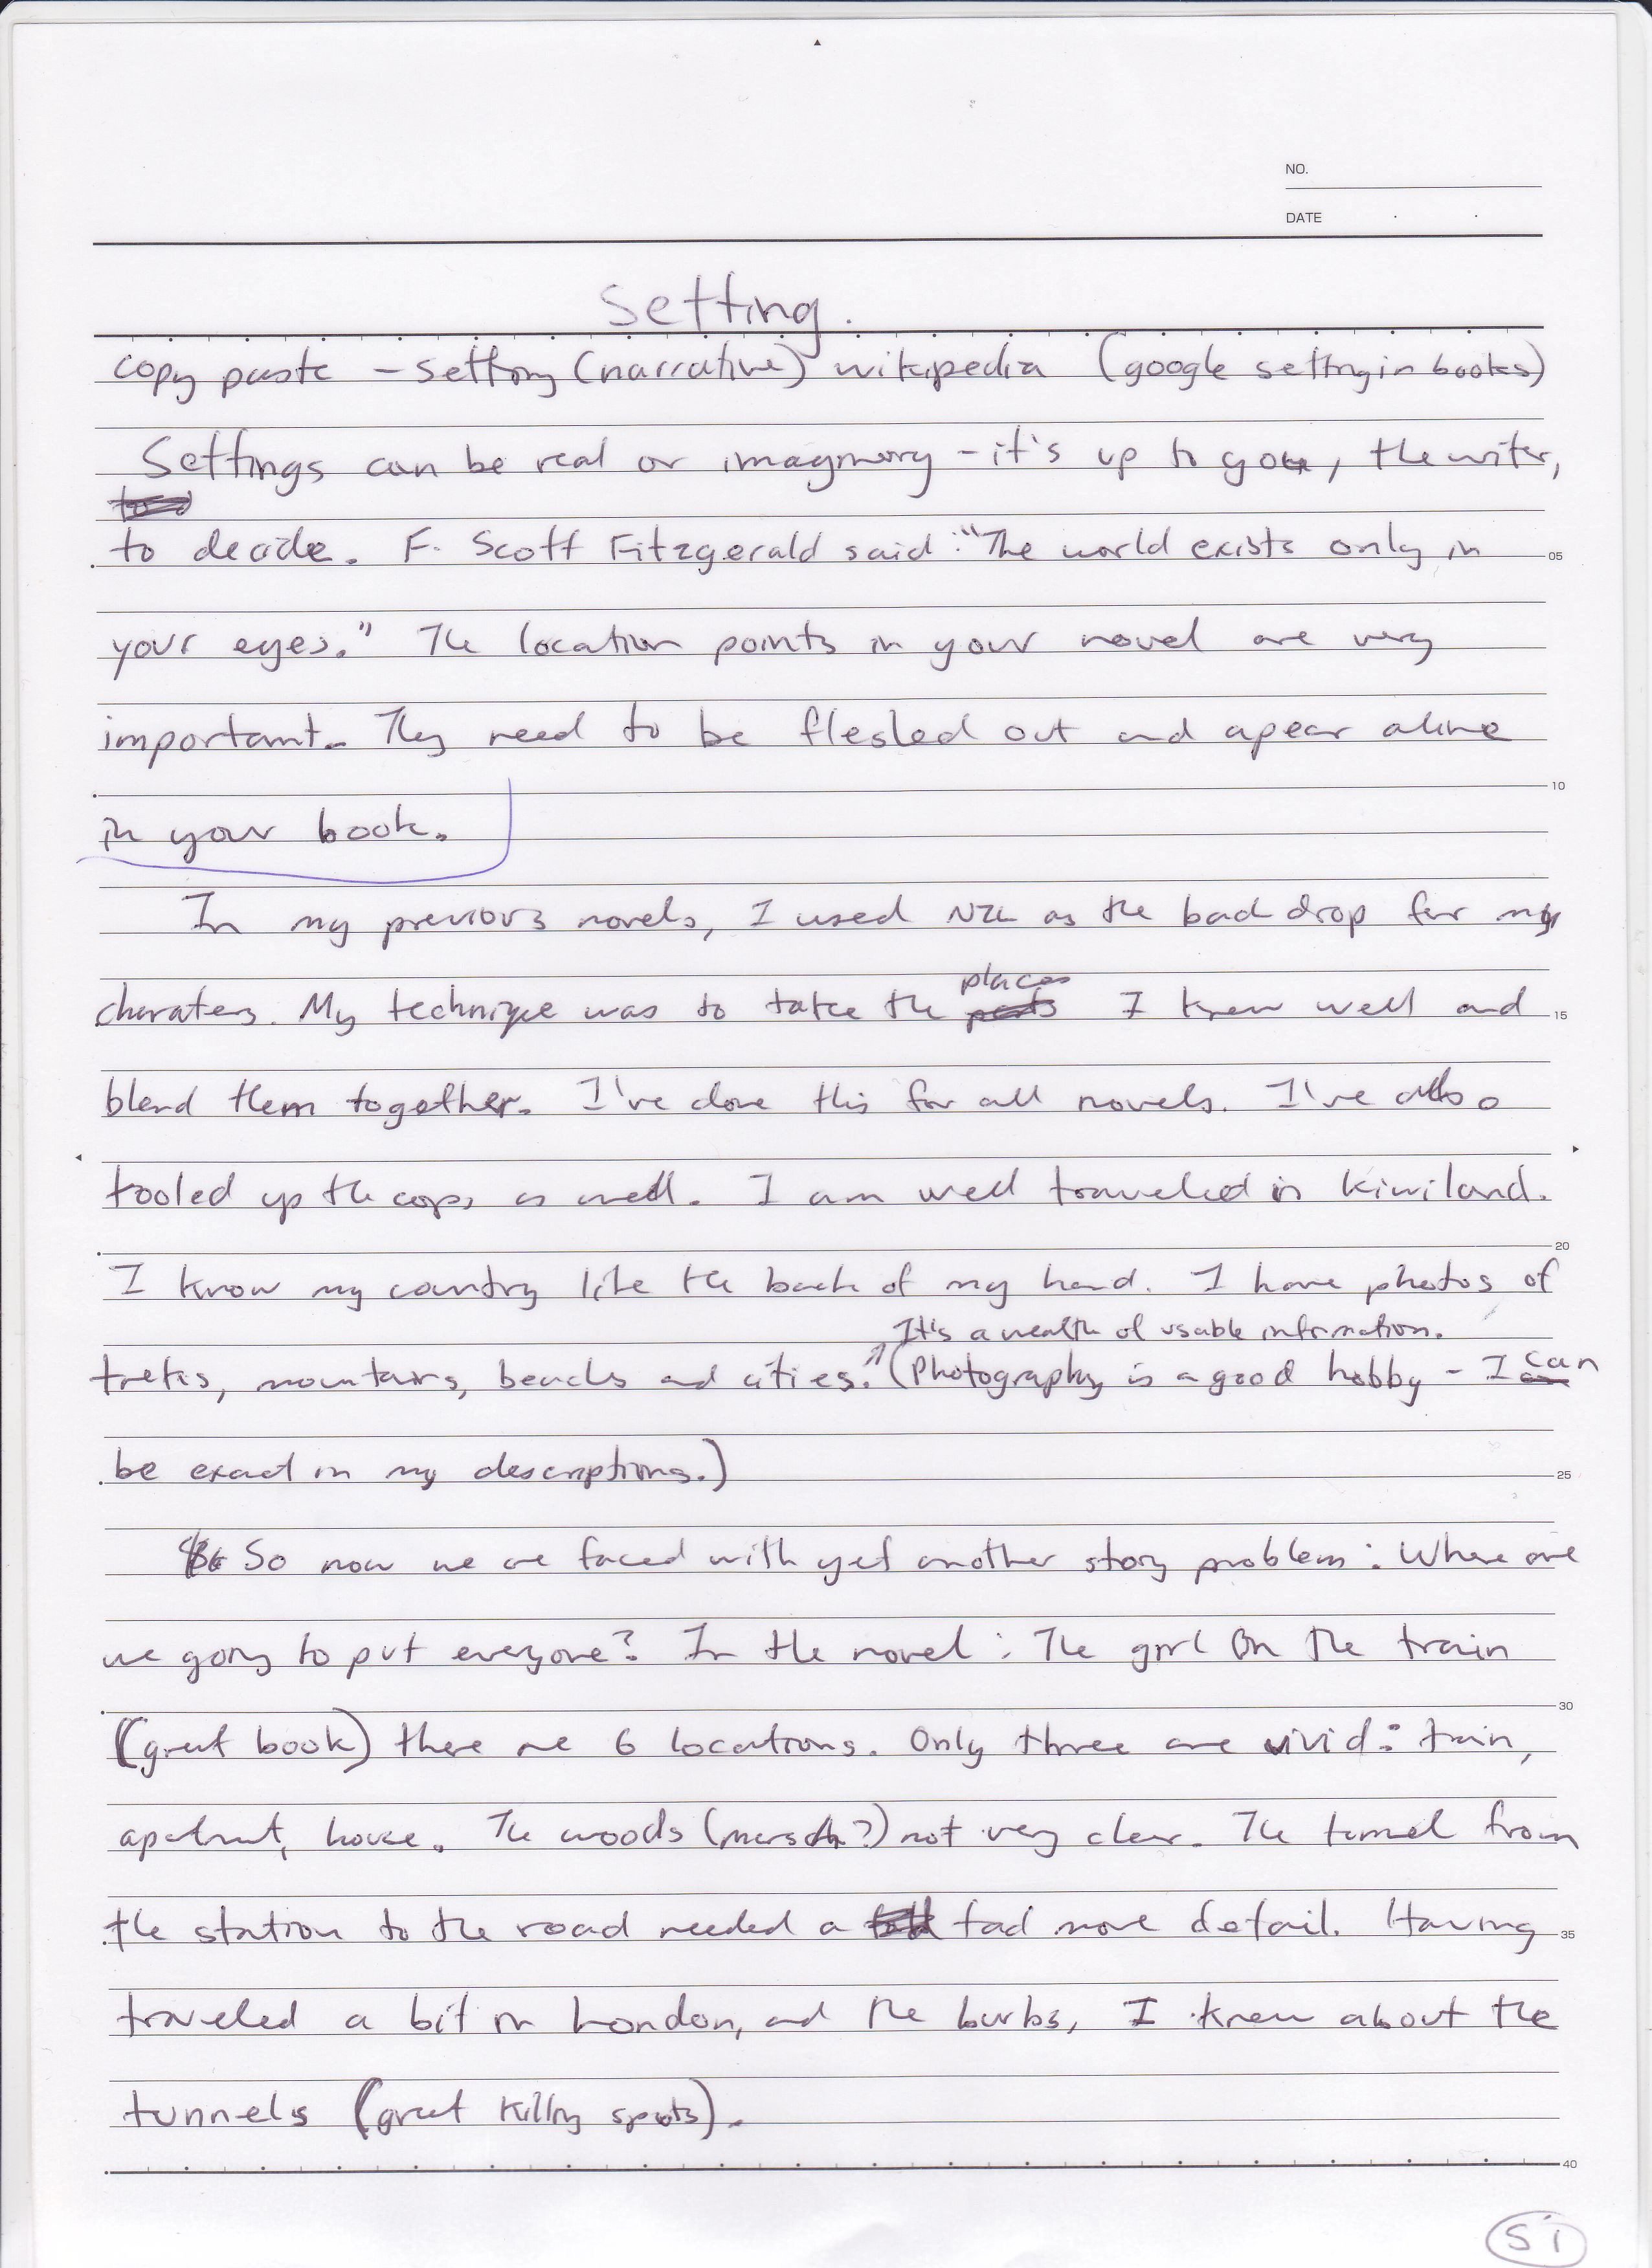 NO.
DATE
Setting.
copy paste - setting (narrative) wikipedia (google setting in books)
Settings can be real or imaginary - it's up to you, the writer,
to decide. F. Scott Fitzgerald said: "The world exists only in
05
your eyes." The location points in your novel are very
important. They need to be fleshed out and apear alive
10
in your book.
In my previous novels, I used NZ as the back drop for my
places
charaters. My technique was to take the parts I know well and
15
blend them together. I've done this for all novels. I've also
tooled up the cops, as well. I am well traveled in Kiwiland.
20
I know my country like the back of my hand. I have photos of
It's a wealth of usable information.
treks, mountains, beaches and cities. (Photography is a good hobby - I can
be exact in my descriptions.)
25
So now we are faced with yet another story problem: Where are
we going to put everyone? In the novel: The girl On the train
30
(great book) there are 6 locations. Only three are vivid: train,
apartment, house. The woods (marsh?) not very clear. The tunnel from
the station to the road needed a tad more detail. Having
35
traveled a bit in London, and the burbs, I knew about the
tunnels (great killing spots).
40
S1